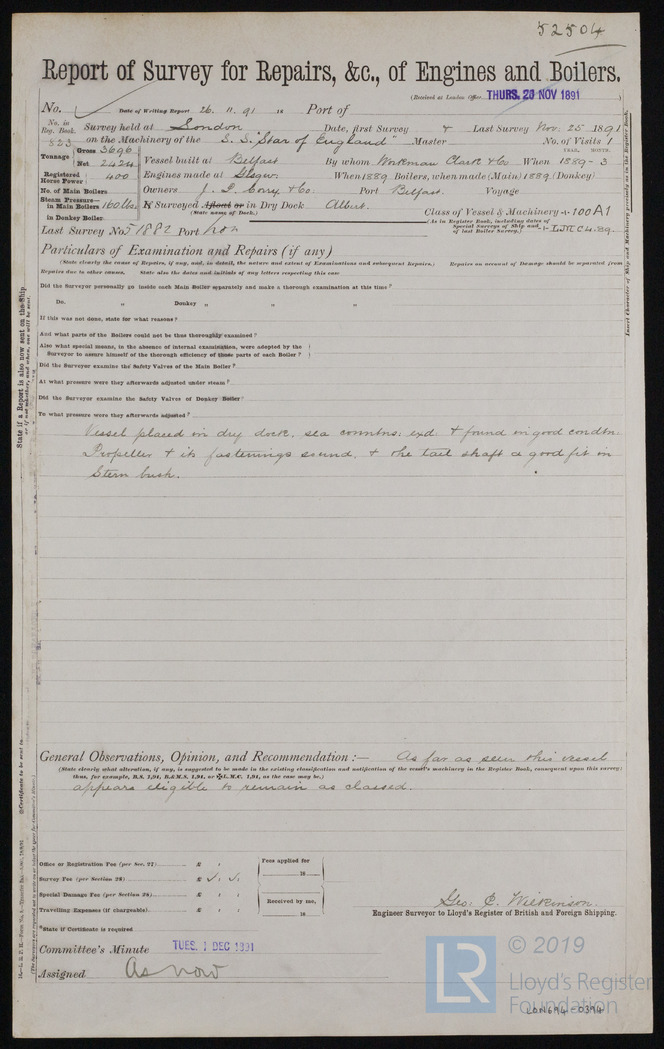 52504
Report of Survey for Repairs, &c., of Engines and Boilers.
(Received at London Office THURS. 26 NOV 1891)
No. Date of Writing Report 26. 11. 91 18 Port of
No. in Reg. Book. Survey held at London Date, first Survey & Last Survey Nov. 25 1891
823 on the Machinery of the S.S. "Star of England" Master No. of Visits 1
YEAR. MONTH.
Tonnage Gross 3696 Net 2424 Vessel built at Belfast By whom Workman Clark & Co When 1889-3
Registered Horse Power 400 Engines made at Glsgw. When 1889 Boilers, when made (Main) 1889 (Donkey)
No. of Main Boilers Owners J. P. Corry & Co. Port Belfast. Voyage
Steam Pressure— in Main Boilers 160 lbs. If Surveyed Afloat or in Dry Dock Albert.
(State name of Dock.)
in Donkey Boiler Class of Vessel & Machinery 100 A1
(As in Register Book, including dates of Special Surveys of Ship and of last Boiler Survey.) LMC 4.89.
Last Survey No. 51882 Port Lon
Particulars of Examination and Repairs (if any)
(State clearly the cause of Repairs, if any, and, in detail, the nature and extent of Examinations and subsequent Repairs.) Repairs on account of Damage should be separated from
Repairs due to other causes. State also the dates and initials of any letters respecting this case
Did the Surveyor personally go inside each Main Boiler separately and make a thorough examination at this time?
Do. " Donkey " " "
If this was not done, state for what reasons?
And what parts of the Boilers could not be thus thoroughly examined?
Also what special means, in the absence of internal examination, were adopted by the
Surveyor to assure himself of the thorough efficiency of those parts of each Boiler?
Did the Surveyor examine the Safety Valves of the Main Boiler?
At what pressure were they afterwards adjusted under steam?
Did the Surveyor examine the Safety Valves of Donkey Boiler?
To what pressure were they afterwards adjusted?
Vessel placed in dry dock, sea conntns: exd. & found in good condtn.
Propeller & its fastenings sound, & the tail shaft a good fit in
Stern bush.
General Observations, Opinion, and Recommendation:— As far as seen this vessel
(State clearly what alteration, if any, is suggested to be made in the existing classification and notification of the vessel's machinery in the Register Book, consequent upon this survey;
thus, for example, B.S. 1,91, B.&M.S. 1,91, or L.M.C. 1,91, as the case may be.)
appears eligible to remain as classed.
Office or Registration Fee (per Sec. 27) £ Fees applied for
Survey Fee (per Section 28) £ 18
Special Damage Fee (per Section 28) £ Received by me,
Travelling Expenses (if chargeable) £ 18
Geo. C. Wilkinson.
Engineer Surveyor to Lloyd's Register of British and Foreign Shipping.
*State if Certificate is required
Committee's Minute TUES. 1 DEC 1891
Assigned As now
Insert Character of Ship and Machinery precisely as in the Register Book.
State if a Report is also now sent on the Ship
Certificate to be sent to
LR © 2019
Lloyd's Register
Foundation
LON694-0394